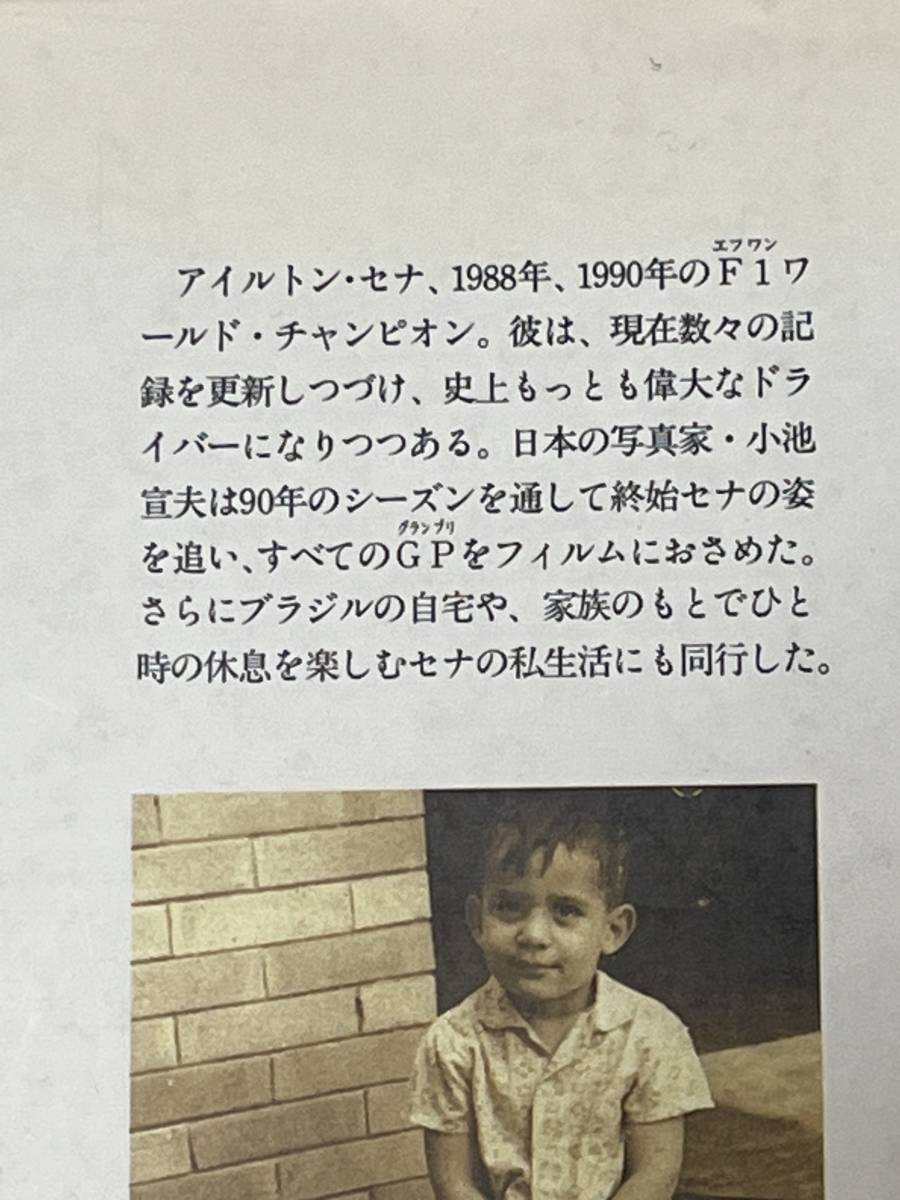 エフワン
アイルトン・セナ、1988年、1990年のF1ワ
ールド・チャンピオン。彼は、現在数々の記
録を更新しつづけ、史上もっとも偉大なドラ
イバーになりつつある。日本の写真家・小池
宣夫は90年のシーズンを通して終始セナの姿
グランプリ
を追い、すべてのGPをフィルムにおさめた。
さらにブラジルの自宅や、家族のもとでひと
時の休息を楽しむセナの私生活にも同行した。